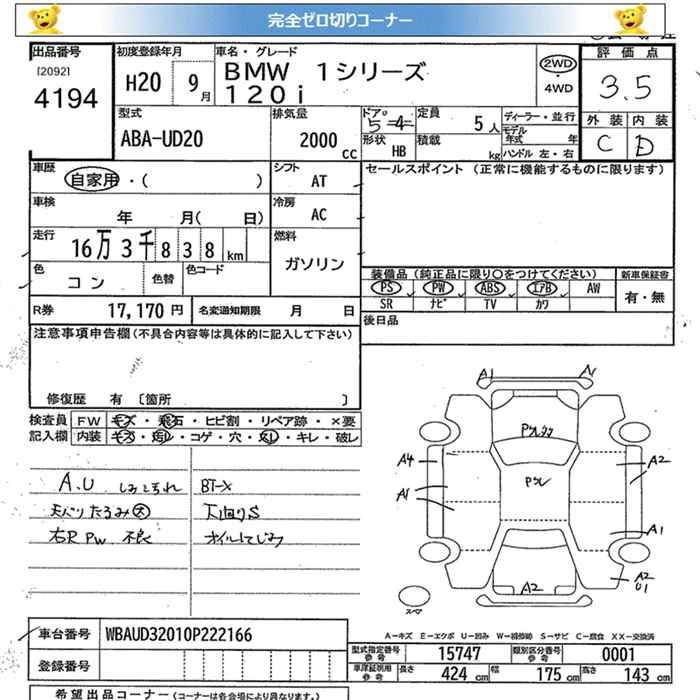 完全ゼロ切りコーナー
出品番号 初度登録年月 車名・グレード 評価点
[2092] 4194 H20 9月 BMW 1シリーズ 120i 2WD・4WD 3.5
型式 排気量 ドア 定員 ディーラー・並行 外装 内装
ABA-UD20 2000 CC 5=4 5人 モデル年式 年 C D
形状 HB 積載 kg ハンドル 左・右
車歴 自家用・( ) シフト AT セールスポイント (正常に機能するものに限ります)
車検 年 月( 日) 冷房 AC
走行 16万3千838km 燃料 ガソリン
色 コン 色替 色コード 装備品(純正品に限り〇をつけてください) 新車保証書
PS PW ABS エアB AW 有・無
SR ナビ TV カワ
R券 17,170円 名変通知期限 月 日 後日品
注意事項申告欄(不具合内容等は具体的に記入して下さい)
修復歴 有 〔箇所 〕
検査員 FW キズ・飛石・ヒビ割・リペア跡・×要
記入欄 内装 キズ・汚レ・コゲ・穴・欠レ・キレ・破レ
A.U BT-X
天バリたるみ大 下回りS
右R PW 不良 オイルにじみ
A1 A1
Pクレ
A4 A2
A1 A1
A2 A2 U1
スペア
A-キズ E-エクボ U-凹み W-補修跡 S-サビ C-腐食 XX-交換済
車台番号 WBAUD32010P222166 型式指定番号 参考 15747 類別区分番号 参考 0001
登録番号 車検証別用 参考 長さ 424cm 幅 175cm 高さ 143cm
希望出品コーナー (コーナーは各会場により異なります。)